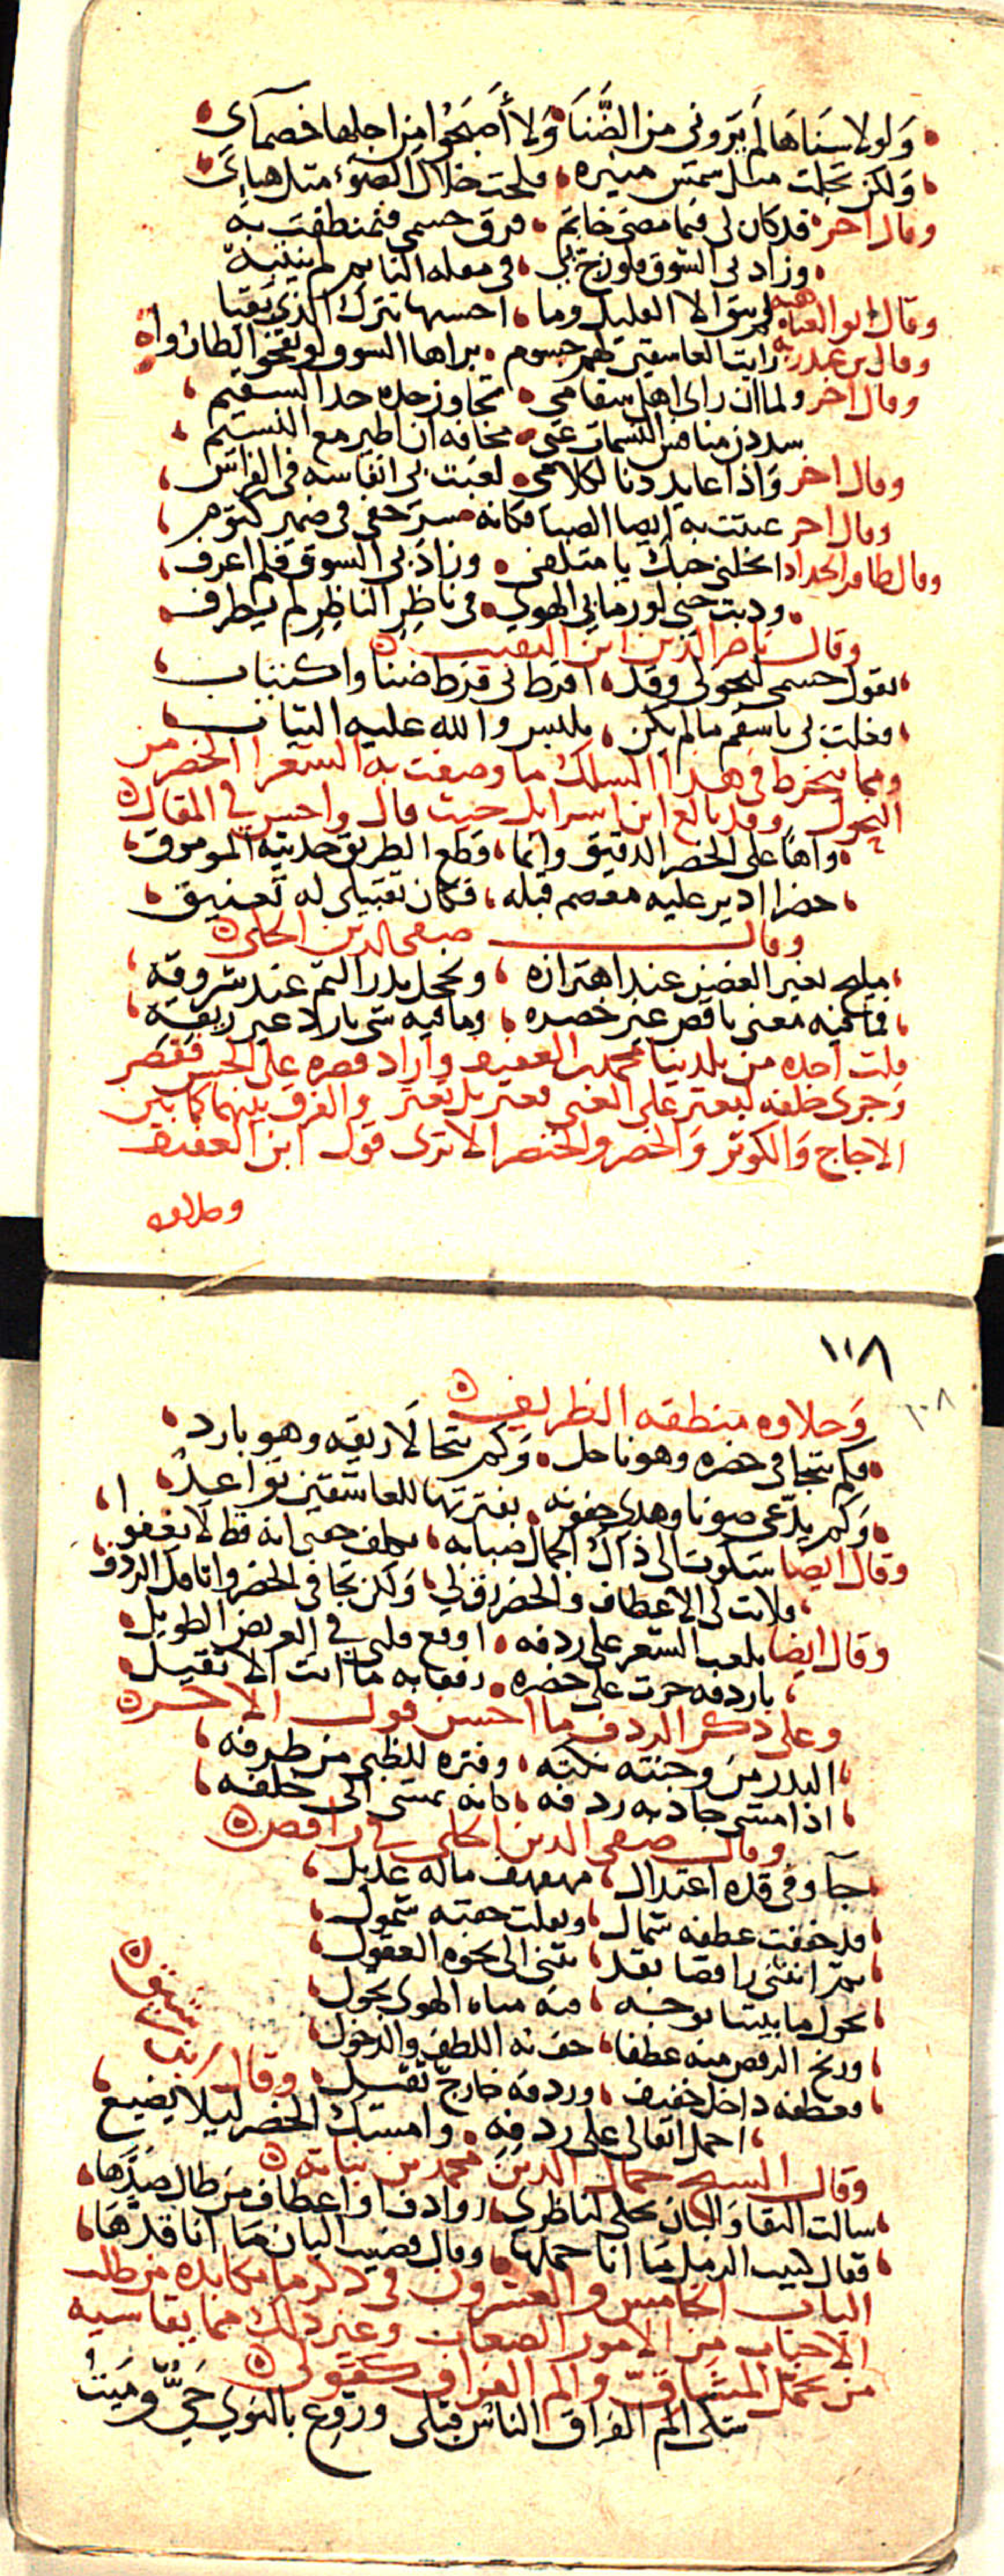 ولولا سناها لم يروني من الضنا ولا أصبحوا من اجلها خصماي
ولكن تجلت مثل شمس منيره فلحت خلال الضوء مثل هباي
وقال اخر قد كان لي فيما مضى خاتم فرق جسمي فتمنطقت به
وزاد بي الشوق فلو زج بي في مقلة النايم لم ينتبه
وقال ابو العتاهيه لم يبق الا القليل وما احسبها تترك الذي بقيا
وقال بن عبد ربه رايت العاشقين لهم جسوم براها الشوق لو نفخوا لطاروا
وقال اخر ولما ان راى اهل سقامي تجاوز حده حد السقيم
سددن منافس النسمات عني مخافة ان اطير مع النسيم
وقال اخر واذا عايد دنا لكلامي لعبت بي انفاسه في الفراش
وقال اخر عبثت به ايضا الصبا فكانه سر خفي في ضمير كتوم
وقال ظافر الحداد انحلني حبك يا متلفي وزاد بي الشوق فلم اعرف
وذبت حتى لو رما بي الهوى في ناظر الناظر لم يطرف
وقال ناصر الدين ابن النقيب
تقول جسمي لنحولي وقد افرط لي فرط ضنا واكتئاب
فعلت بي يا سقم ما لم يكن يلبس والله عليه الثياب
ومما ينخرط في هذا السلك ما وصفت به الشعرا الخصر من
النحول وقد بالغ ابن اسرايل حيث قال واحسن في المقال
واها على الخصر الدقيق وانما قطع الطريق حديثه الموموق
خصر ادير عليه معصم قبله فكان تقبيلي له تعنيق
وقال صفي الدين الحلي
مليح يغير الغصن عند اهتزازه ويخجل بدر التم عند شروقه
فما فيه معنى ناقص غير خصره وما فيه شي بارد غير ريقه
قلت اخذه من بلدينا محمد بن العفيف واراد قصره على الجنس فقصر
وجرى خلفه ليعثر على المعنى فعثر بل تعثر والفرق بينهما كما بين
الاجاج والكوثر والخصر والخنصر الا ترى قول ابن العفيف
وحلاوه
١١٨
١٠٨
وحلاوه منطقه الظريف
فكم يتجافى خصره وهو ناحل وكم يتحالا ريقه وهو بارد
وكم يدعي صونا وهذي جفونه بفترتها للعاشقين تواعد
وقال ايضا شكوت الى ذاك الجمال صبابه تكلف جفني انه قط لا يغفوا
فلانت لي الاعطاف والخصر رق لي ولكن تجافى الخصر واثاقل الردف
وقال ايضا يلعب الشعر على ردفه اوقع قلبي في العريض الطويل
يا ردفه جرت على خصره رفقا به ما انت الا ثقيل
وعلى ذكر الردف ما احسن قول الاخر
البدر من وجنته نكته وفتره للظبي من طرفه
اذا مشى جاذبه ردفه كانه يمشي الى خلفه
وقال صفي الدين الحلي في راقص
جآ وفي قده اعتدال مهفهف ماله عديل
قد خففت عطفه شمال وثقلت جفنه شمول
ثم انثنى راقصا بقد تثنى الى نحوه العقول
يجول ما بيننا بوجه فيه مياه الهوى تجول
ورنح الرقص منه عطفا حف به اللطف والدخول
فعطفه داخل خفيف وردفه خارج ثقيل وقال
احمل اثقالي على ردفه وامسك الخصر ليلا يضيع
وقال الشيخ جمال الدين محمد بن نباته
سالت النقا والبان يحكي لناظري روادف او اعطاف من طال صدها
فقال كثيب الرمل ما انا حملها وقال قضيب البان ما انا قدها
الباب الخامس والعشرون في ذكر ما يكابده من طلب
الاحباب من الامور الصعاب وغير ذلك مما يقاسيه
من تحمل المشاق والم الفراق كقولي
شكى الم الفراق الناس قبلي وروع بالنوى حي وميت